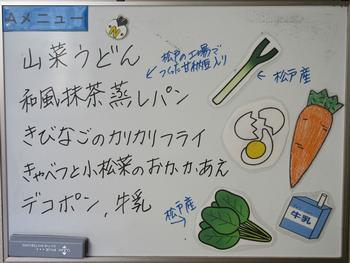 Aメニュー
山菜うどん
松戸の工場で
つくった甘納豆入り
和風抹茶蒸しパン
きびなごのカリカリフライ
きゃべつと小松菜のおかかあえ
デコポン,牛乳
松戸産
松戸産
牛乳